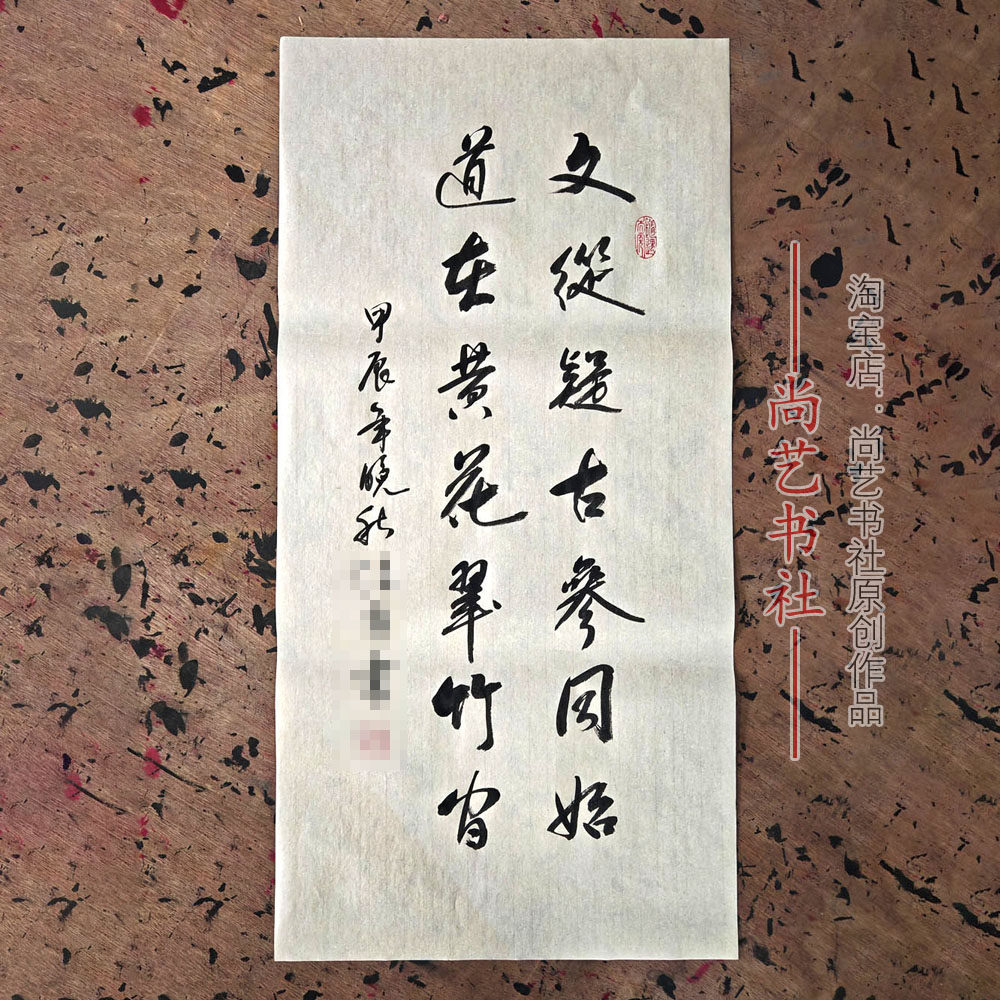 文從疑古參同始
道在黄花翠竹间
甲辰年晚秋
書
尚艺书社
淘宝店：尚艺书社原创作品